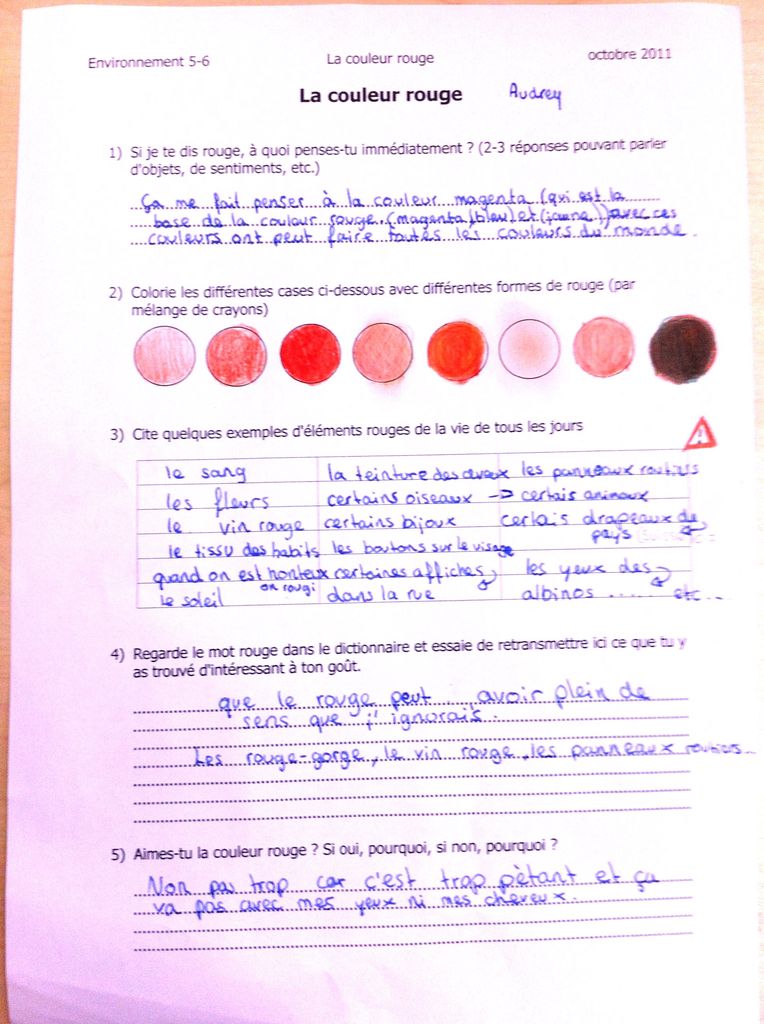 Environnement 5-6 La couleur rouge octobre 2011
La couleur rouge Audrey
1) Si je te dis rouge, à quoi penses-tu immédiatement ? (2-3 réponses pouvant parler
d'objets, de sentiments, etc.)
Ça me fait penser à la couleur magenta (qui est la
base de la couleur rouge. (magenta)bleu) et (jaune)) avec ces
couleurs ont peut faire toutes les couleurs du monde.
2) Colorie les différentes cases ci-dessous avec différentes formes de rouge (par
mélange de crayons)
3) Cite quelques exemples d'éléments rouges de la vie de tous les jours
A
le sang la teinture des cheveux les panneaux routiers
les fleurs certains oiseaux -> certais animaux
le vin rouge certains bijoux certais drapeaux de
pays
le tissu des habits les boutons sur le visage
quand on est honteux certaines affiches les yeux des
on rougi
le soleil dans la rue albinos ..... etc...
4) Regarde le mot rouge dans le dictionnaire et essaie de retransmettre ici ce que tu y
as trouvé d'intéressant à ton goût.
que le rouge peut avoir plein de
sens que j'ignorais.
Les rouge-gorge, le vin rouge, les panneaux routiers...
5) Aimes-tu la couleur rouge ? Si oui, pourquoi, si non, pourquoi ?
Non pas trop car c'est trop pètant et ça
va pas avec mes yeux ni mes cheveux.